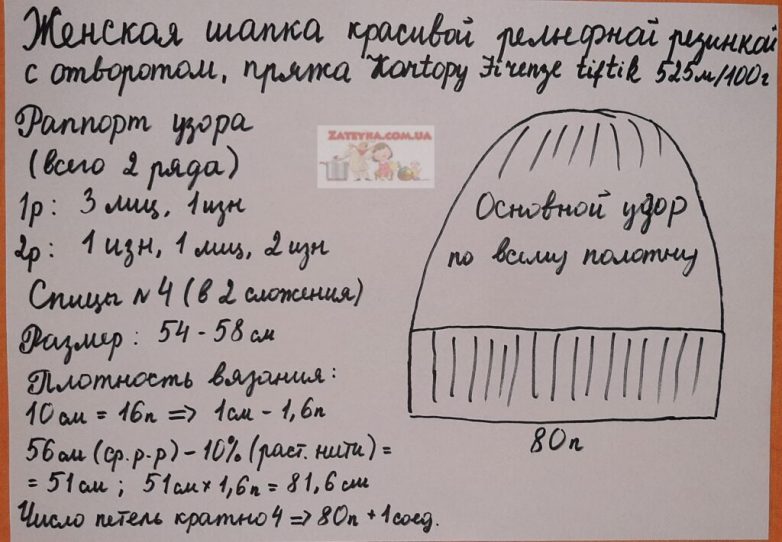 Женская шапка красивой рельефной резинкой
с отворотом, пряжа Kartopy Firenze tiftik 525м/100г
ZATEYKA.COM.UA
Раппорт узора
(всего 2 ряда)
1р: 3 лиц, 1 изн
2р: 1 изн, 1 лиц, 2 изн
Спицы №4 (в 2 сложения)
Размер: 54-58 см
Плотность вязания:
10 см = 16п => 1см - 1,6п
56см (ср. р-р) - 10% (раст. нити) =
= 51 см; 51см × 1,6п = 81,6 см
Число петель кратно 4 => 80п + 1 соед.
Основной узор
по всему полотну
80п